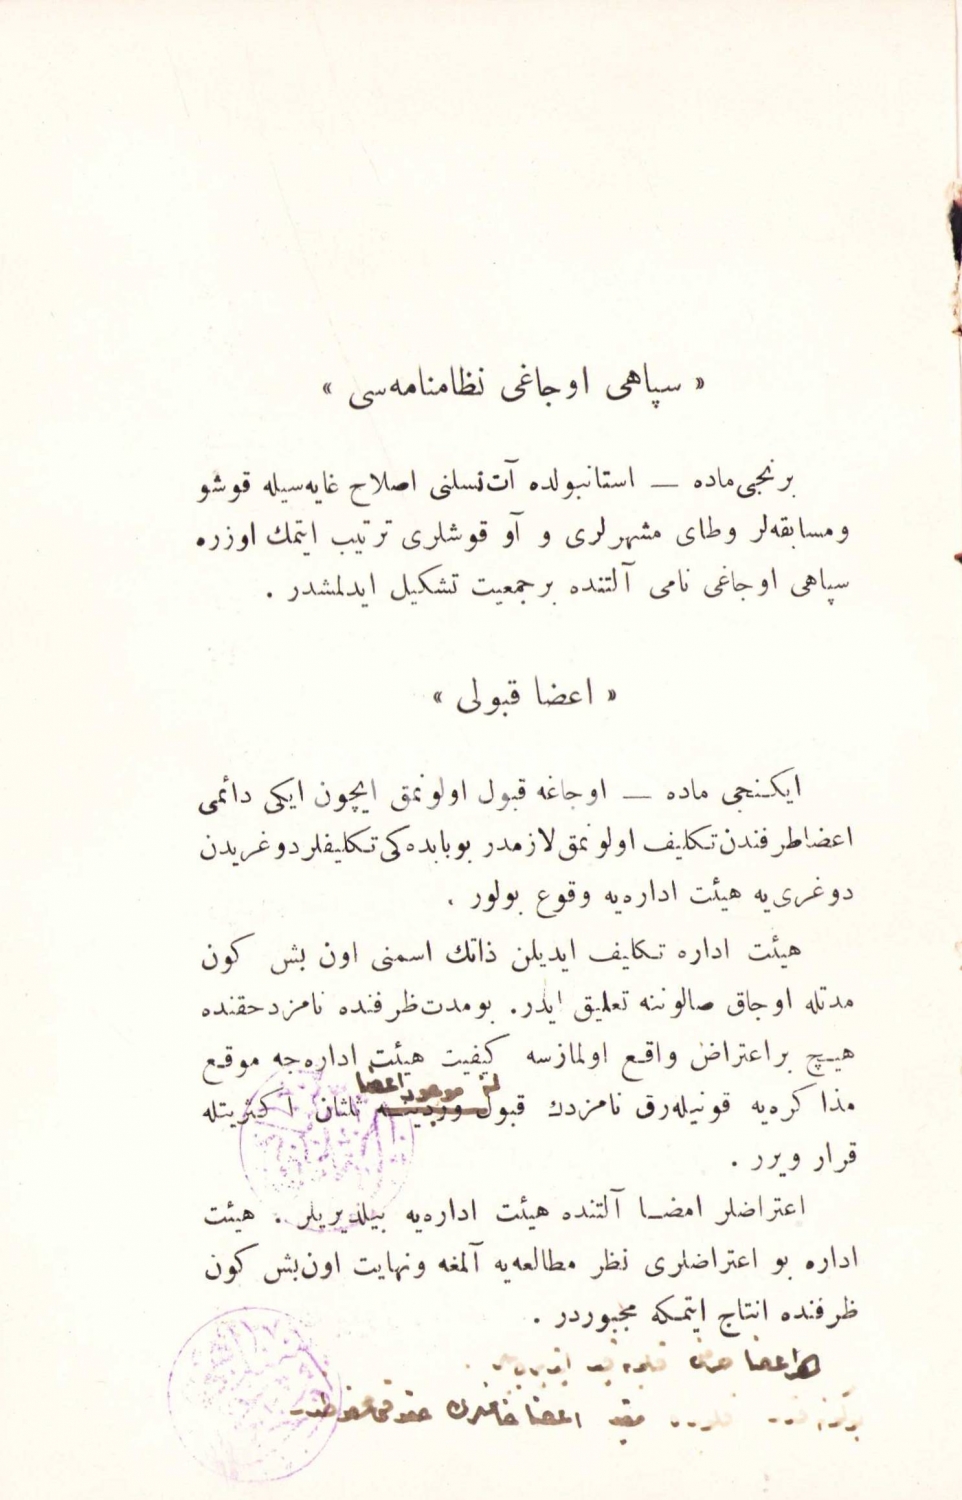 « سپاهی اوجاغی نظامنامه‌سی »
برنجی ماده — استانبولده آت نسلنی اصلاح غایه‌سیله قوشو
ومسابقه‌لر وطای مشهرلری و آو قوشلری ترتیب ایتمك اوزره
سپاهی اوجاغی نامی آلتنده برجمعیت تشکیل ایدلمشدر .
« اعضا قبولی »
ایکنجی ماده — اوجاغه قبول اولونمق ایچون ایکی دائمی
اعضاطرفندن تکلیف اولونمق لازمدر بوبابده‌کی تکلیفلر دوغریدن
دوغری‌یه هیئت اداره‌یه وقوع بولور .
هیئت اداره تکلیف ایدیلن ذاتك اسمنی اون بش کون
مدتله اوجاق صالوننه تعلیق ایدر. بومدت ظرفنده نامزدحقنده
هیچ براعتراض واقع اولمازسه کیفیت هیئت اداره‌جه موقع
موجود اعضا
مذاکره‌یه قونیله‌رق نامزدك قبول وردینه ثلثان اکثریتله
قرار ویرر .
اعتراضلر امضا آلتنده هیئت اداره‌یه بیلدیریلر . هیئت
اداره بو اعتراضلری نظر مطالعه‌یه آلمغه ونهایت اون‌بش کون
ظرفنده انتاج ایتمکه مجبوردر .
اعضا
مقید اعضا